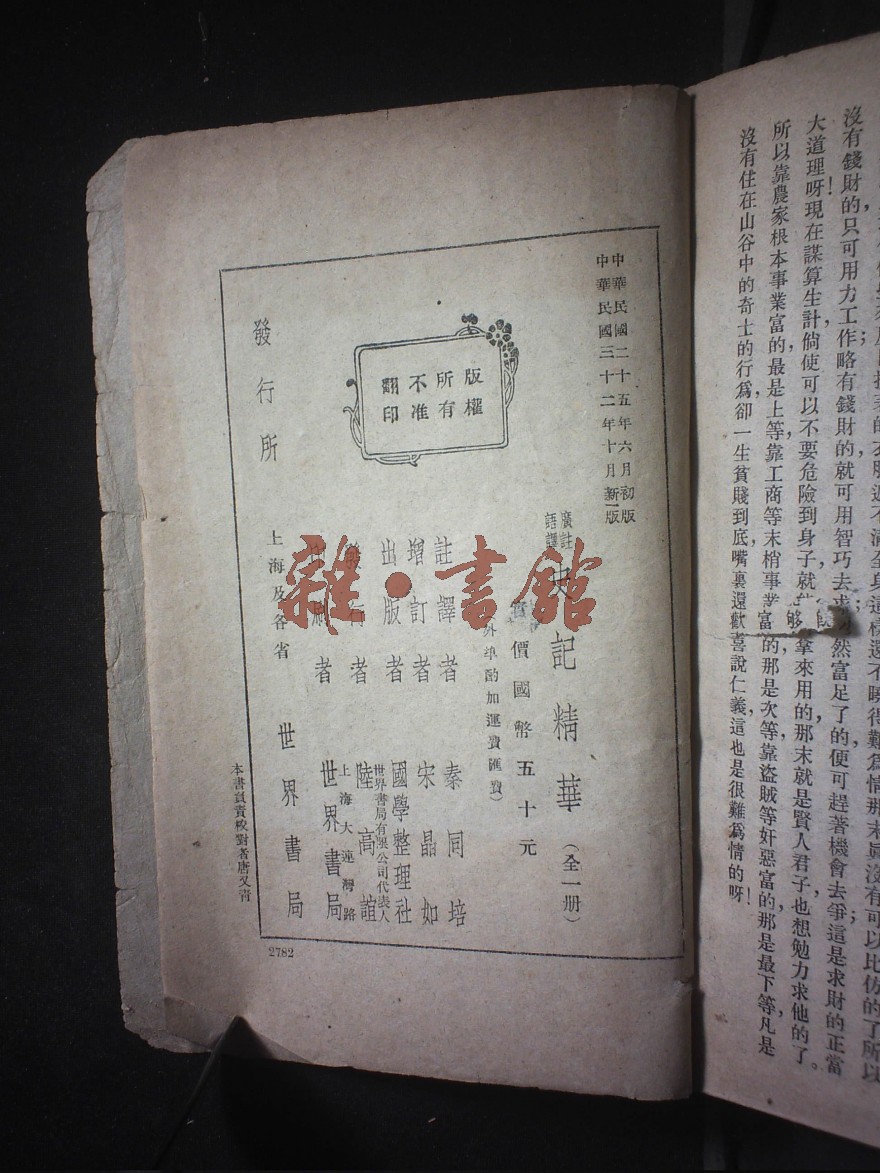 沒有錢財的只可用力工作略有錢財的就可用智巧去求
然富足了的便可趕著機會去爭這是求財的正當
大道理呀!現在謀算生計,倘使可以不要危險到身子,就
够拿來用的,那末就是賢人君子也想勉力求他的了。
所以靠農家根本事業富的,最是上等,靠工商等末梢事業富的,那是次等,靠盜賊等奸惡富的,那是最下等,凡是
沒有住在山谷中的奇士的行爲,卻一生貧賤到底,嘴裏還歡喜說仁義,這也是很難爲情的呀!
中華民國二十五年六月初版
中華民國三十二年十月新一版
廣註
語譯
史記精華(全一册)
實價國幣五十元
(外埠酌加運費匯費)
註譯者 秦同培
增訂者 宋晶如
出版者 國學整理社
世界書局有限公司代表人
發行者 陸高誼
上海大連灣路
印刷者 世界書局
發行所 上海及各省 世界書局
版權
所有
不准
翻印
本書負責校對者唐又青
2782
雜·書館